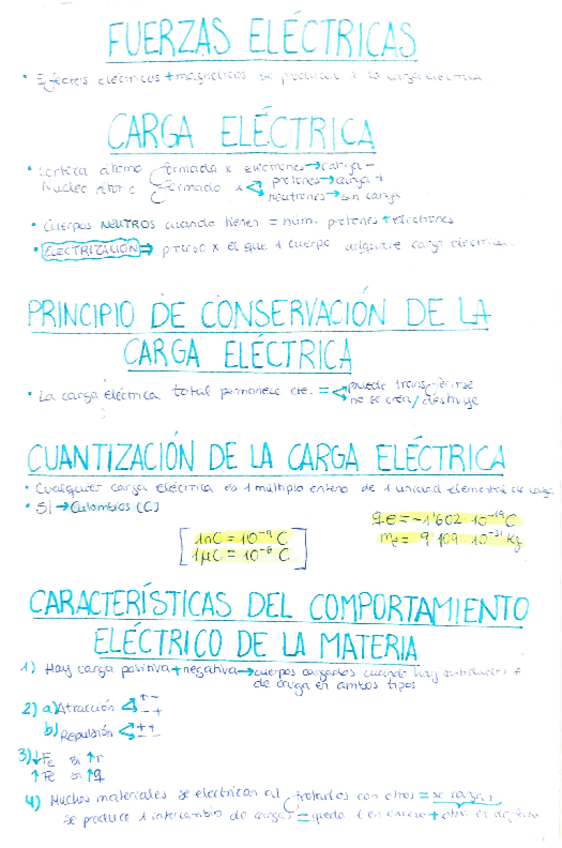 FUERZAS ELÉCTRICAS
• Efectos eléctricos + magnéticos se producen x la carga eléctrica
CARGA ELÉCTRICA
• Corteza átomo formada x electrones → carga -
Núcleo átomo formado x protones → carga +
neutrones → sin carga
• Cuerpos NEUTROS cuando tienen = núm. protones + electrones
• ELECTRIZACIÓN ⇒ proceso x el que 1 cuerpo adquiere carga eléctrica.
PRINCIPIO DE CONSERVACIÓN DE LA
CARGA ELÉCTRICA
• La carga eléctrica total permanece cte. = puede transferirse
no se crea/destruye
CUANTIZACIÓN DE LA CARGA ELÉCTRICA
• Cualquier carga eléctrica es 1 múltiplo entero de 1 unidad elemental de carga
• SI → Culombios (C)
q.e = -1'602·10⁻¹⁹ C
1nC = 10⁻⁹ C
me = 9'109·10⁻³¹ Kg
1μC = 10⁻⁶ C
CARACTERÍSTICAS DEL COMPORTAMIENTO
ELÉCTRICO DE LA MATERIA
1) Hay carga positiva + negativa → cuerpos cargados cuando hay
de carga en ambos tipos
2) a) Atracción + -
- +
b) Repulsión + +
- -
3) ↓Fe si ↑r
↑Fe si ↑q
4) Muchos materiales se electrizan al frotarlos con otros = se cargan,
se produce 1 intercambio de cargas = queda 1 en exceso + otro en defecto